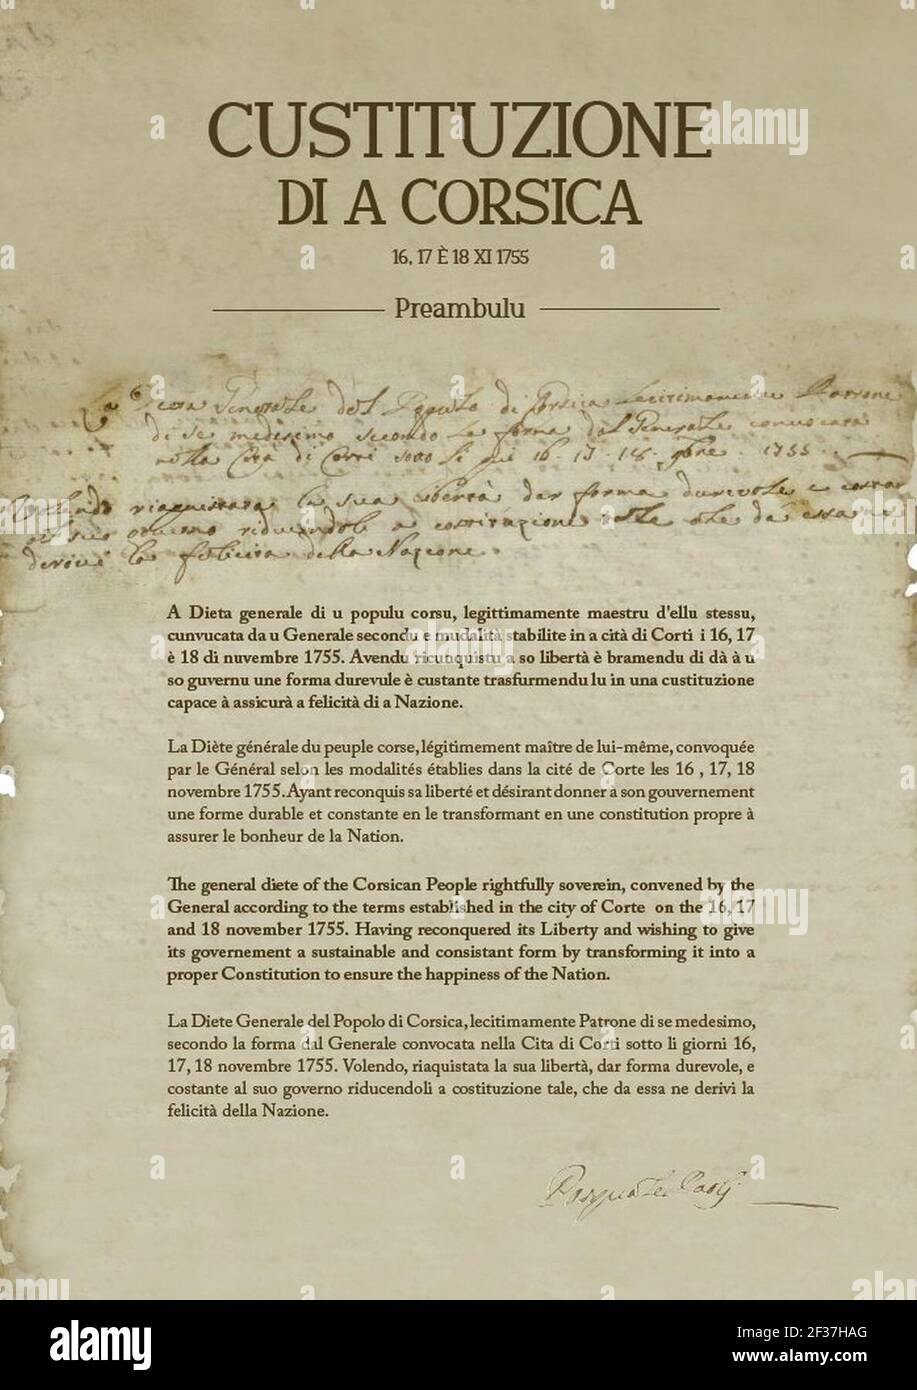 CUSTITUZIONE
DI A CORSICA
16, 17 È 18 XI 1755
Preambulu
La Dieta Generale del Popolo di Corsica Lecitimamente Patrone
di se medesimo secondo la forma dal Generale convocata
nella Cita di Corti sotto li 16. 17. 18. 9bre. 1755.
Volendo riaquistata la sua libertà dar forma durevole e costan
al suo governo riducendoli a costituzione tale che da essa ne
derivi la felicita della Nazione.
A Dieta generale di u populu corsu, legittimamente maestru d'ellu stessu,
cunvucata da u Generale secondu e mudalità stabilite in a cità di Corti i 16, 17
è 18 di nuvembre 1755. Avendu ricunquistu a so libertà è bramendu di dà à u
so guvernu une forma durevule è custante trasfurmendu lu in una custituzione
capace à assicurà a felicità di a Nazione.
La Diète générale du peuple corse, légitimement maître de lui-même, convoquée
par le Général selon les modalités établies dans la cité de Corte les 16 , 17, 18
novembre 1755. Ayant reconquis sa liberté et désirant donner à son gouvernement
une forme durable et constante en le transformant en une constitution propre à
assurer le bonheur de la Nation.
The general diete of the Corsican People rightfully soverein, convened by the
General according to the terms established in the city of Corte on the 16, 17
and 18 november 1755. Having reconquered its Liberty and wishing to give
its governement a sustainable and consistant form by transforming it into a
proper Constitution to ensure the happiness of the Nation.
La Diete Generale del Popolo di Corsica, lecitimamente Patrone di se medesimo,
secondo la forma dal Generale convocata nella Cita di Corti sotto li giorni 16,
17, 18 novembre 1755. Volendo, riaquistata la sua libertà, dar forma durevole, e
costante al suo governo riducendoli a costituzione tale, che da essa ne derivi la
felicità della Nazione.
Pasquale Paoli
alamy
Image ID: 2F37HAG
www.alamy.com